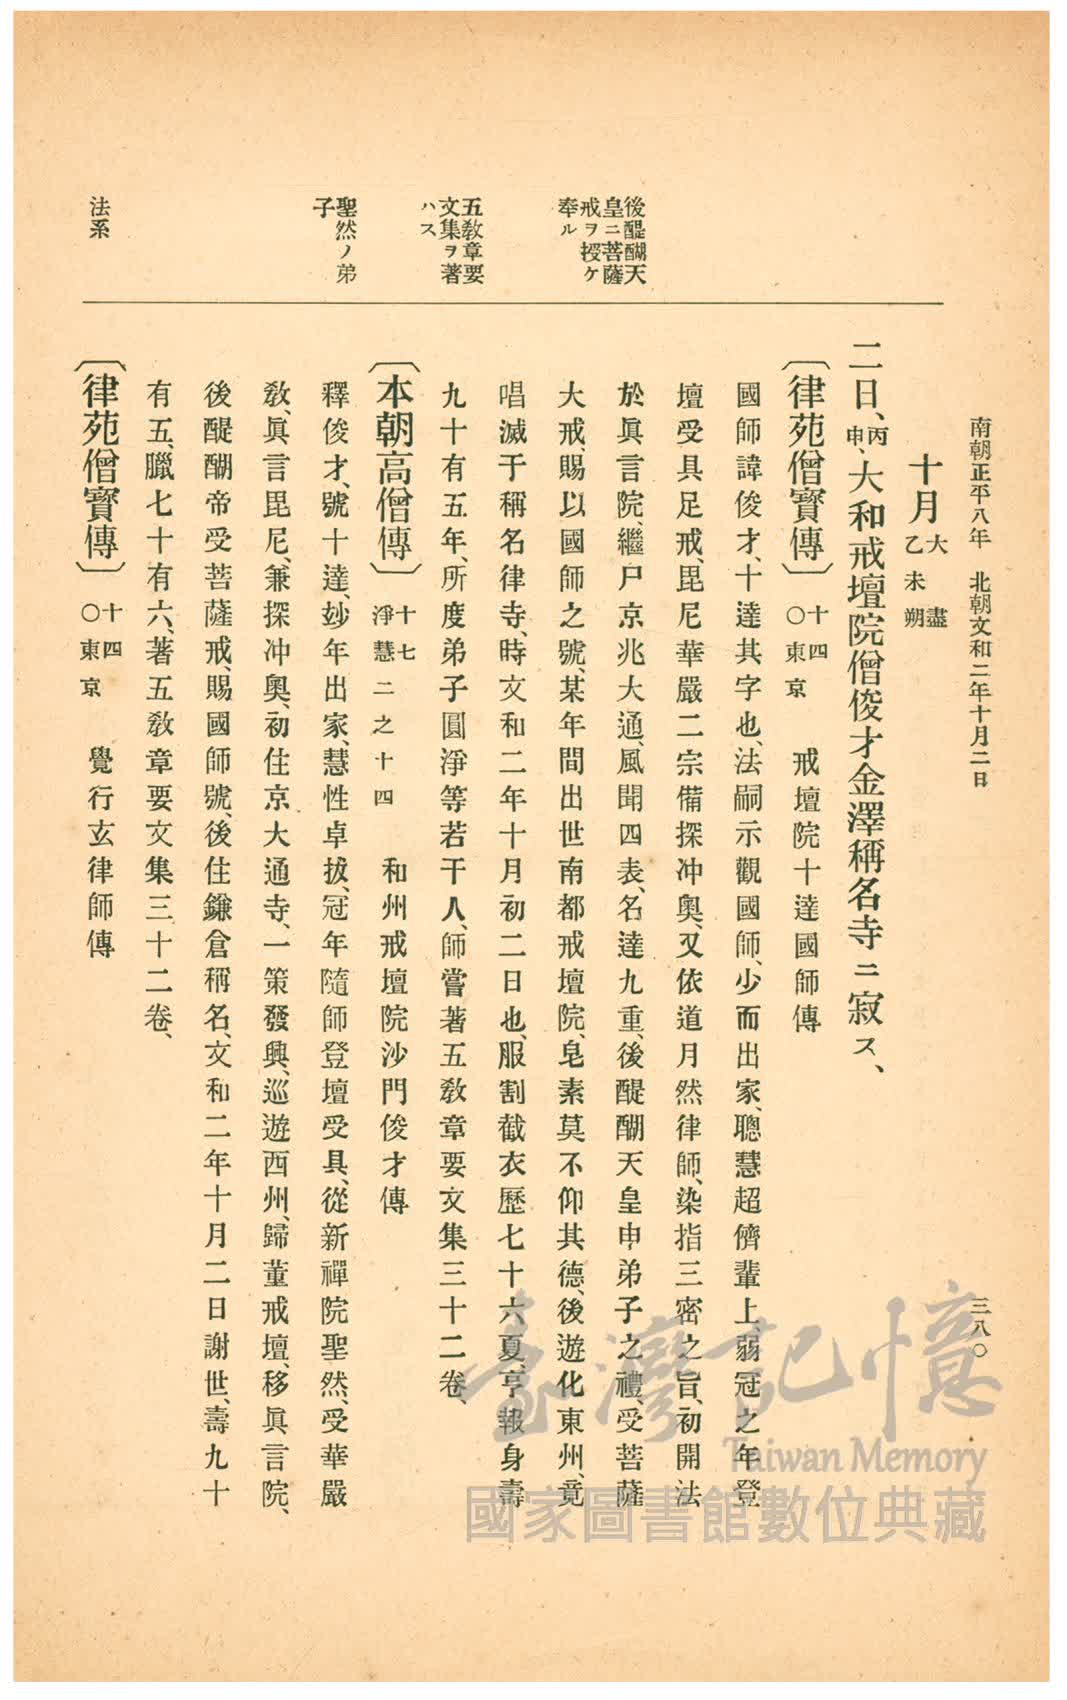 南朝正平八年 北朝文和二年十月二日
三八〇
十月大盡乙未朔
二日、丙申、大和戒壇院僧俊才金澤稱名寺ニ寂ス、
〔律苑僧寶傳〕十四〇東京 戒壇院十達國師傳
國師諱俊才、十達其字也、法嗣示觀國師、少而出家、聰慧超儕輩上、弱冠之年登
壇受具足戒、毘尼華嚴二宗備探冲奧、又依道月然律師、染指三密之旨、初開法
於眞言院、繼尸京兆大通、風聞四表、名達九重、後醍醐天皇申弟子之禮、受菩薩
大戒、賜以國師之號、某年間出世南都戒壇院、皂素莫不仰其德、後遊化東州、竟
唱滅于稱名律寺、時文和二年十月初二日也、服割截衣歷七十六夏、亨報身壽
九十有五年、所度弟子圓淨等若干人、師嘗著五敎章要文集三十二卷、
〔本朝高僧傳〕十七淨慧二之十四 和州戒壇院沙門俊才傳
釋俊才、號十達、玅年出家、慧性卓拔、冠年隨師登壇受具、從新禪院聖然、受華嚴
敎、眞言毘尼、兼探冲奧、初住京大通寺、一策發興、巡遊西州、歸董戒壇、移眞言院、
後醍醐帝受菩薩戒、賜國師號、後住鎌倉稱名、文和二年十月二日謝世、壽九十
有五、臘七十有六、著五敎章要文集三十二卷、
〔律苑僧寶傳〕十四〇東京 覺行玄律師傳
後醍醐天
皇ニ菩薩
戒ヲ授ケ
奉ル
五敎章要
文集ヲ著
ハス
聖然ノ弟
子
法系
臺灣記憶
Taiwan Memory
國家圖書館數位典藏